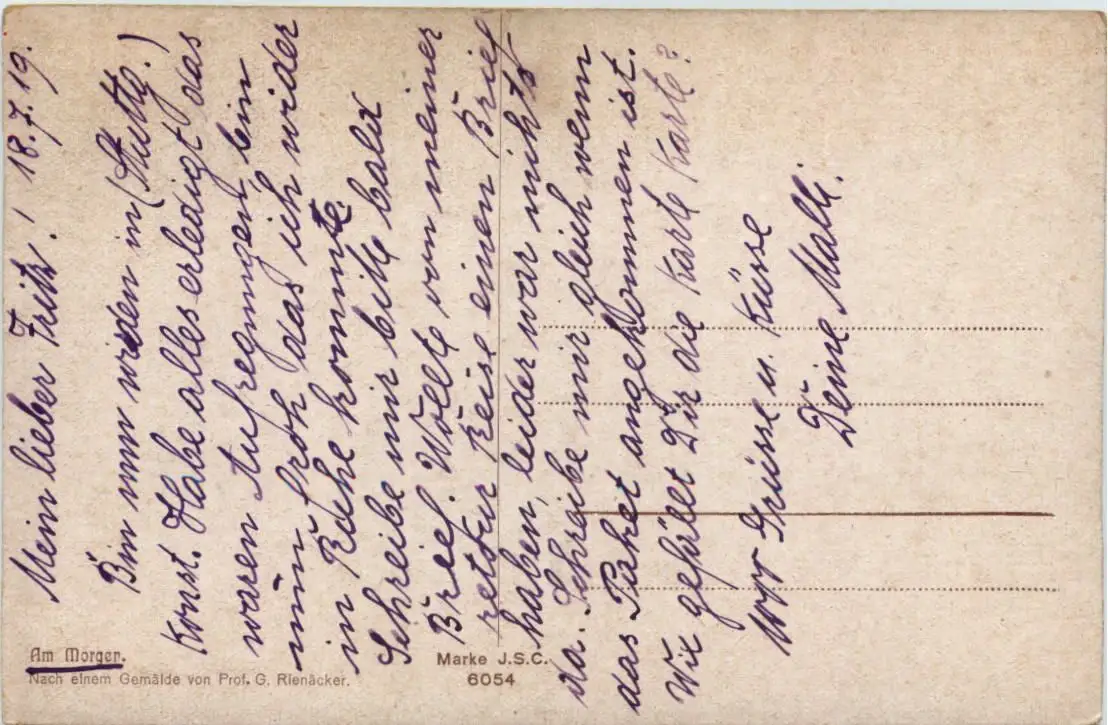 Mein lieber Fritz! 18.7.19.
Bin nun wieden in (Stuttg.)
Konst. Habe alles erledigt das
waren Aufregungen bin
nun froh das ich wider
in Ruhe kommte.
Schreibe mir bitte bald
Brief. Wollte von meiner
retour Reise einen Brief
haben, leider war nichts
da. Schreibe mir gleich wenn
das Paket angekommen ist.
Wie gefällt Dir die Karte Karte?
Grüsse u. Küsse
Deine Malli.
Am Morgen.
Nach einem Gemälde von Prof. G. Rienäcker.
Marke J.S.C.
6054